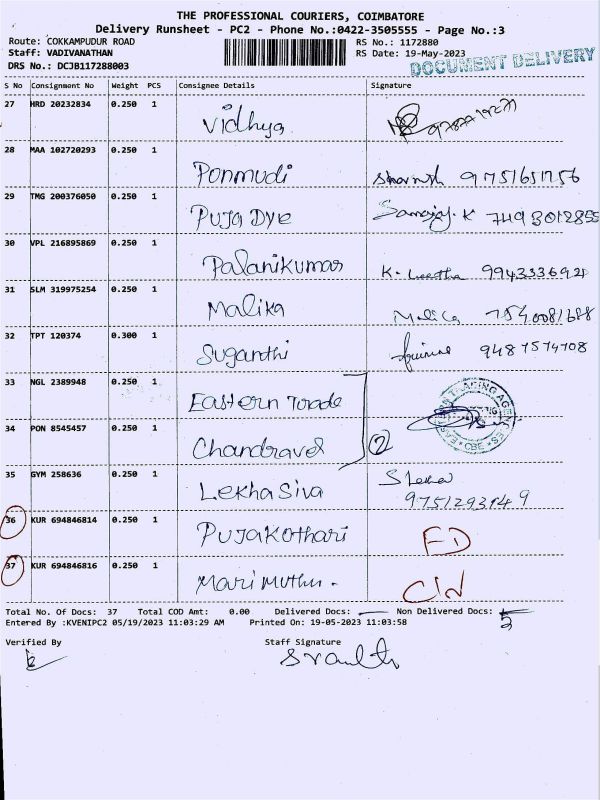 THE PROFESSIONAL COURIERS, COIMBATORE
Delivery Runsheet - PC2 - Phone No.:0422-3505555 - Page No.:3
Route: COKKAMPUDUR ROAD RS No.: 1172880
Staff: VADIVANATHAN RS Date: 19-May-2023
DRS No.: DCJB117288003 DOCUMENT DELIVERY
S No Consignment No Weight PCS Consignee Details Signature
27 HRD 20232834 0.250 1 Vidhya
28 MAA 102720293 0.250 1 Ponmudi 9751651756
29 TMG 200376050 0.250 1 Puja Dye 7493012855
30 VPL 216895869 0.250 1 Palanikumar K. 9943336921
31 SLM 319975254 0.250 1 Malika Malika 7540081688
32 TPT 120374 0.300 1 Suganthi 9487574708
33 NGL 2389948 0.250 1 Eastern Trade
34 PON 8545457 0.250 1 Chandravel 2
35 GYM 258636 0.250 1 Lekha Siva
9751293149
36 KUR 694846814 0.250 1 Puja Kothari FD
37 KUR 694846816 0.250 1 Mari Muthu. CIN
Total No. Of Docs: 37 Total COD Amt: 0.00 Delivered Docs: Non Delivered Docs: 5
Entered By :KVENIPC2 05/19/2023 11:03:29 AM Printed On: 19-05-2023 11:03:58
Verified By Staff Signature